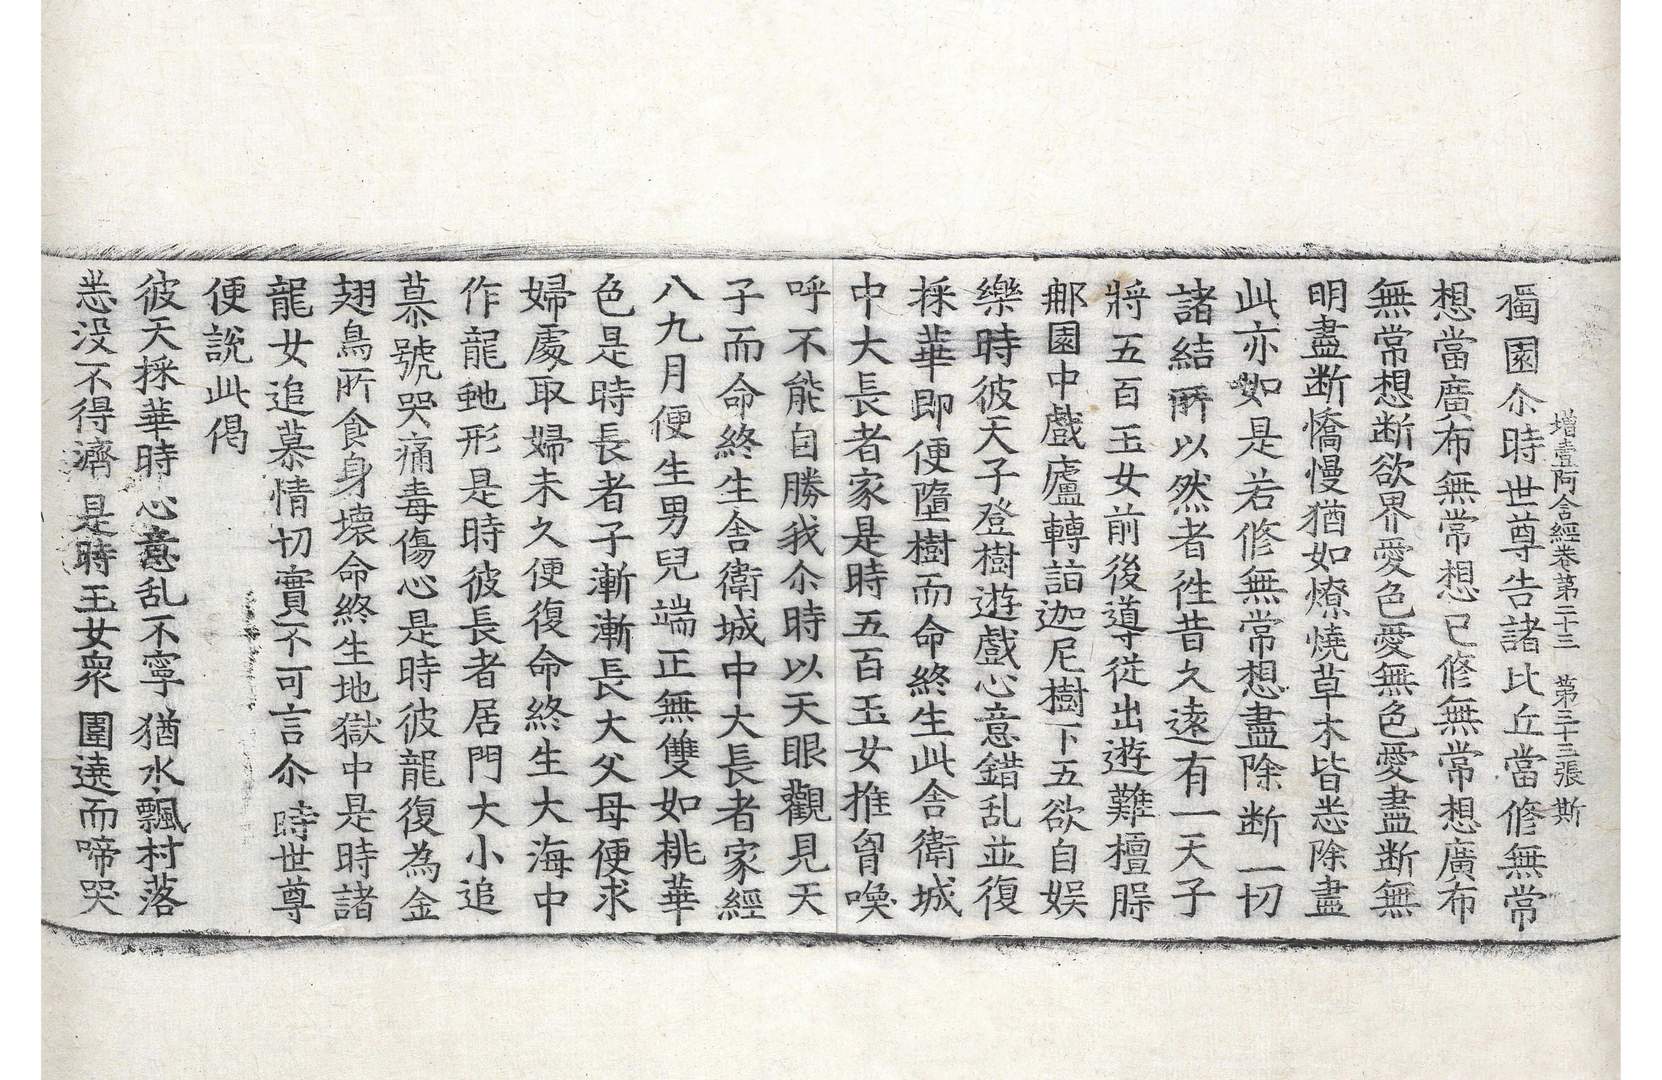 增壹阿含經卷第二十三　第三十三張　斯
獨園尒時世尊告諸比丘當修無常
想當廣布無常想已修無常想廣布
無常想断欲界愛色愛無色愛盡断無
明盡断憍慢猶如燎燒草木皆悉除盡
此亦如是若修無常想盡除断一切
諸結所以然者徃昔久遠有一天子
將五百玉女前後導從出遊難檀䏣
郍園中戲廬轉詣迦尼樹下五欲自娛
樂時彼天子登樹遊戲心意錯乱並復
採華即便墮樹而命終生此舍衛城
中大長者家是時五百玉女推胷喚
呼不能自勝我尒時以天眼觀見天
子而命終生舍衛城中大長者家經
八九月便生男兒端正無雙如桃華
色是時長者子漸漸長大父母便求
婦處取婦未久便復命終生大海中
作龍虵形是時彼長者居門大小追
慕號哭痛毒傷心是時彼龍復為金
翅鳥所食身壞命終生地獄中是時諸
龍女追慕情切實不可言尒時世尊
便說此偈
彼天採華時　心意乱不寧　猶水飄村落
悉没不得濟　是時玉女衆　圍遶而啼哭